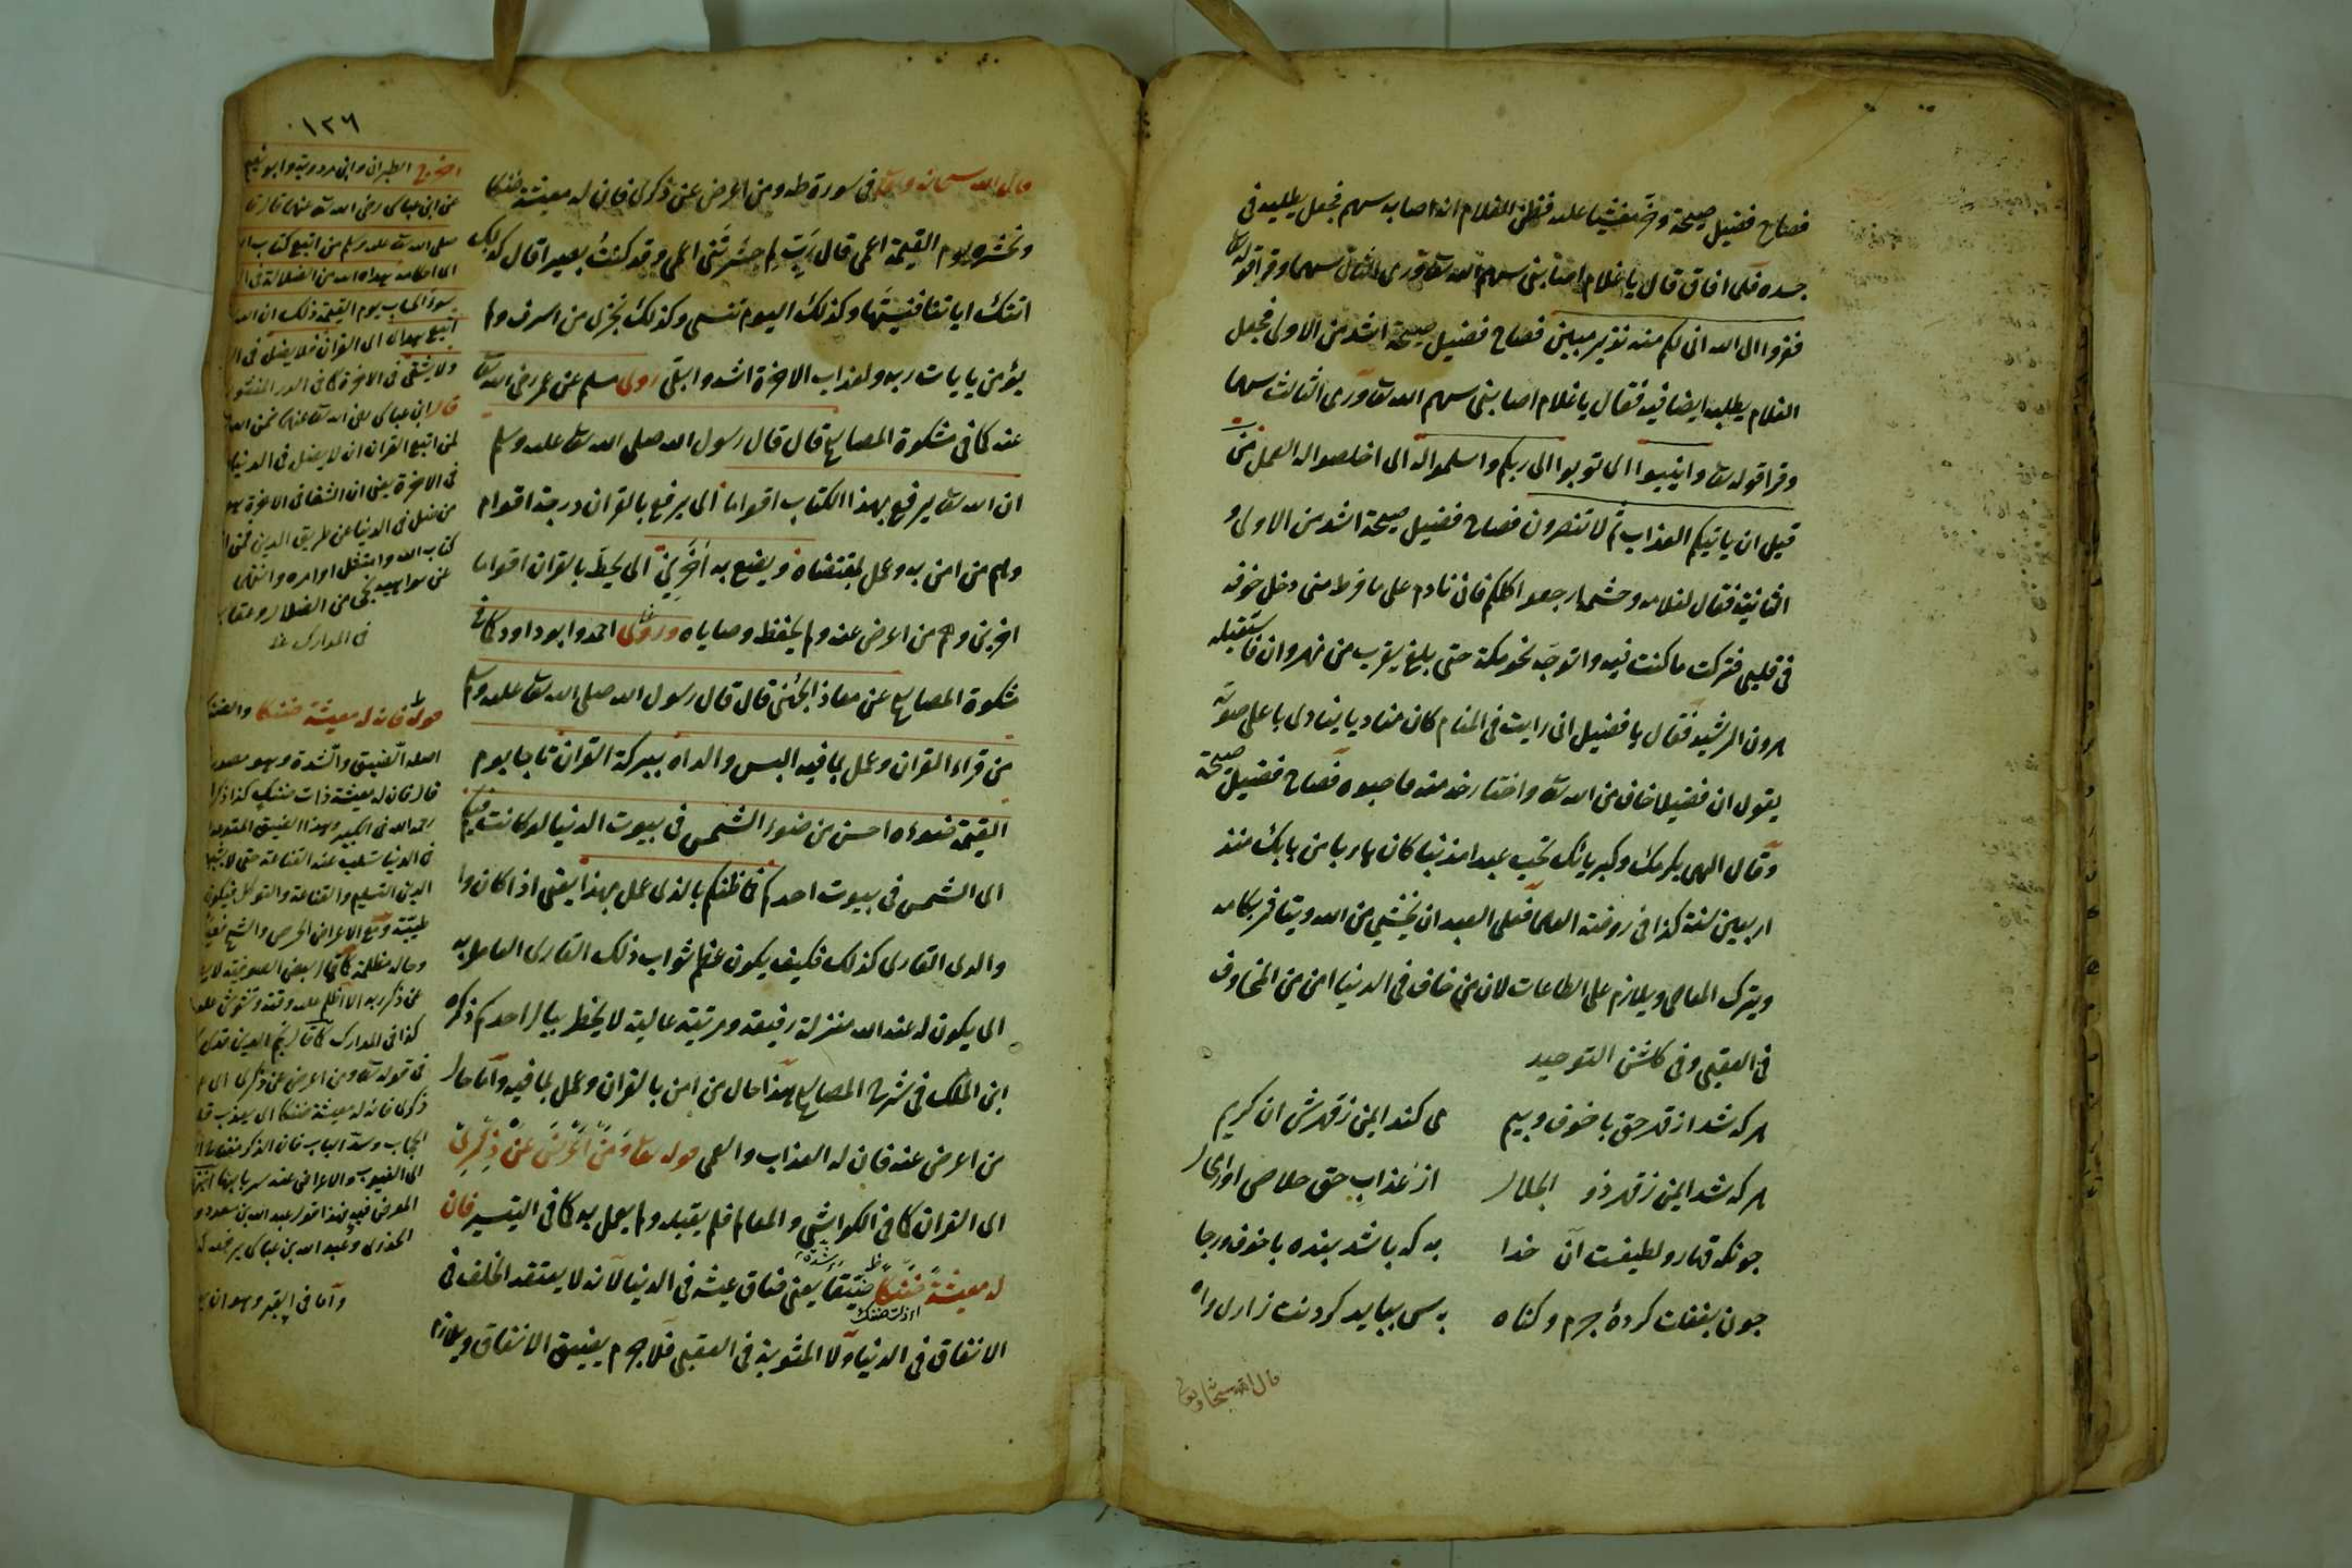 فصاح فضيل صيحة وخر مغشيا عليه فظن الغلام انه اصابه سهم فجعل يطلبه في
جسده فلما افاق قال يا غلام اصابني سهم الله تعا ورمى الثاني سهما وقرا قوله تعا
ففروا الى الله اني لكم منه نذير مبين فصاح فضيل صيحة اشد من الاولى فجعل
الغلام يطلبه ايضا فيه فقال يا غلام اصابني سهم الله تعا ورمى الثالث سهما
وقرا قوله تعا وانيبوا اى توبوا الى ربكم واسلموا له اى اخلصوا له العمل من
قبل ان ياتيكم العذاب ثم لا تنصرون فصاح فضيل صيحة اشد من الاولى و
الثانية فقال لغلامه وحشمه ارجعوا كلكم فاني نادم على ما فرط مني دخل خوفه
في قلبي فتركت ما كنت فيه واتوجه نحو مكة حتى بلغ بقرب من نهروان فاستقبله
هرون الرشيد فقال يا فضيل اني رايت في المنام كان مناديا ينادى باعلى صوته
يقول ان فضيلا خاف من الله تعا واختار خدمته فاحبوه فصاح فضيل صيحة
وقال الهى بكرمك وكبريائك تحب عبدا مذنبا كان هاربا من بابك منذ
اربعين سنة كذا في روضة العلما فعلى العبد ان يخشى من الله ويتا
ويترك المعاصى ويلازم على الطاعات لان من خاف في الدنيا امن من المخاوف
في العقبى وفي كلشن التوحيد
هر كه شد از قهر حق با خوف وبيم مى كند ايمن زقهرش ان كريم
هر كه شد ايمن زقهر ذو الجلال از عذاب حق خلاصى او
جونكه قهار ولطيفست آن خدا به كه باشد بنده با خوف ورجا
جون بغفلت كردۀ جرم وكناه بس ببايد كردنت زارى
قال الله سبحانه وتعالى
١٢٦
قال الله سبحانه وتعالى في سورة طه ومن اعرض عن ذكرى فان له معيشة ضنكا
ونحشره يوم القيمة اعمى قال رب لم حشرتنى اعمى وقد كنت بصيرا قال كذلك
اتتك اياتنا فنسيتها وكذلك اليوم تنسى وكذلك نجزى من اسرف ولم
يؤمن بايات ربه ولعذاب الاخرة اشد وابقى روى مسلم عن عمر رضى الله تعا
عنه كما في مشكوة المصابيح قال قال رسول الله صلى الله تعا عليه وسلم
ان الله تعا يرفع بهذا الكتاب اقواما اى يرفع بالقران درجة اقوام
وهم من امن به وعمل بمقتضاه ويضع به اخرين اى يحط بالقران اقواما
اخرين وهم من اعرض عنه ولم يحفظ وصاياه وروى احمد وابو داود كما في
مشكوة المصابيح عن معاذ الجهنى قال قال رسول الله صلى الله تعا عليه وسلم
من قراء القران وعمل بما فيه البس والداه ببركة القران تاجا يوم
القيمة ضوءه احسن من ضوء الشمس في بيوت الدنيا لو كانت فيكم
اى الشمس في بيوت احدكم فما ظنكم بالذى عمل بهذا يعنى اذا كان
والدى القارى كذلك فكيف يكون عظم ثواب ذلك القارى العامل به
اى يكون له عند الله منزلة رفيعة ومرتبة عالية لا يخطر ببال احدكم ذكره
ابن الملك في شرح المصابيح هذا حال من امن بالقران وعمل بما فيه واما حال
من اعرض عنه فان له العذاب والعمى قوله تعا ومن اعرض عن ذكرى
اى القران كما في الكواشى والمعالم فلم يقبله ولم يعمل به كما في التيسير فان
له معيشة ضنكا ضيقا يعنى ضاق عيشه في الدنيا لانه لا يعتقد الخلف في
الانفاق في الدنيا ولا المثوبة في العقبى فلا جرم يضيق الانفاق
اخرج الطبرانى وابن مردويه وابو نعيم
عن ابن عباس رضى الله تعا عنهما قال قا
صلى الله تعا عليه وسلم من اتبع كتاب ا
هداه الله من الضلالة في ا
سوء الحساب يوم القيمة ذلك ان الله
ولا يشقى في الاخرة كما في الدر المنثور
قال ابن عباس رضى الله تعا عنهما
لمن اتبع القران ان لا يضل في الدنيا
في الاخرة يعنى ان الشقا في الاخرة
من ضل في الدنيا عن طريق الدين
كتاب الله وامتثل اوامره وانتهى
عن نواهيه نجى من الضلال و
في المدارك
قوله فان له معيشة ضنكا والضنك
اصله الضيق والشدة وهو مصدر
قال فان له معيشة ذات ضنك كذا ذكر
رحمه الله في الكبير وهذا الضيق
في الدنيا
الدين التسليم والقناعة والتوكل فيكون
طيبة ومع الاعراض الحرص والشح
وحاله مظلمة كما قال بعض الصوفية لا
عن ذكر ربه الا اظلم عليه وقته وتشوش عليه
كذا في المدارك كما قال نجم الدين
في قوله تعا ومن اعرض عن ذكرى اى
ذكرى فان له معيشة ضنكا اى يعذب
الحجاب وسد الباب فان الذكر مفتاح
واما في القبر وهو ان